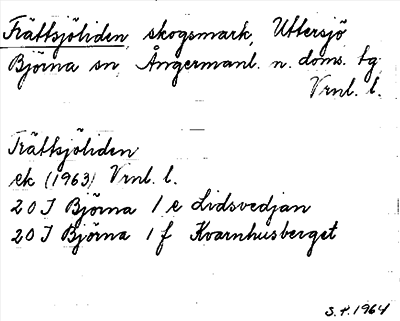 Trättsjöliden, skogsmark, Uttersjö
Björna sn, Ångermanl. n. doms. tg
Vrnl. l.
Trättsjöliden
ek (1963) Vrnl. l.
20 I Björna 1 e Lidsvedjan
20 I Björna 1 f Kvarnhusberget
S.P. 1964